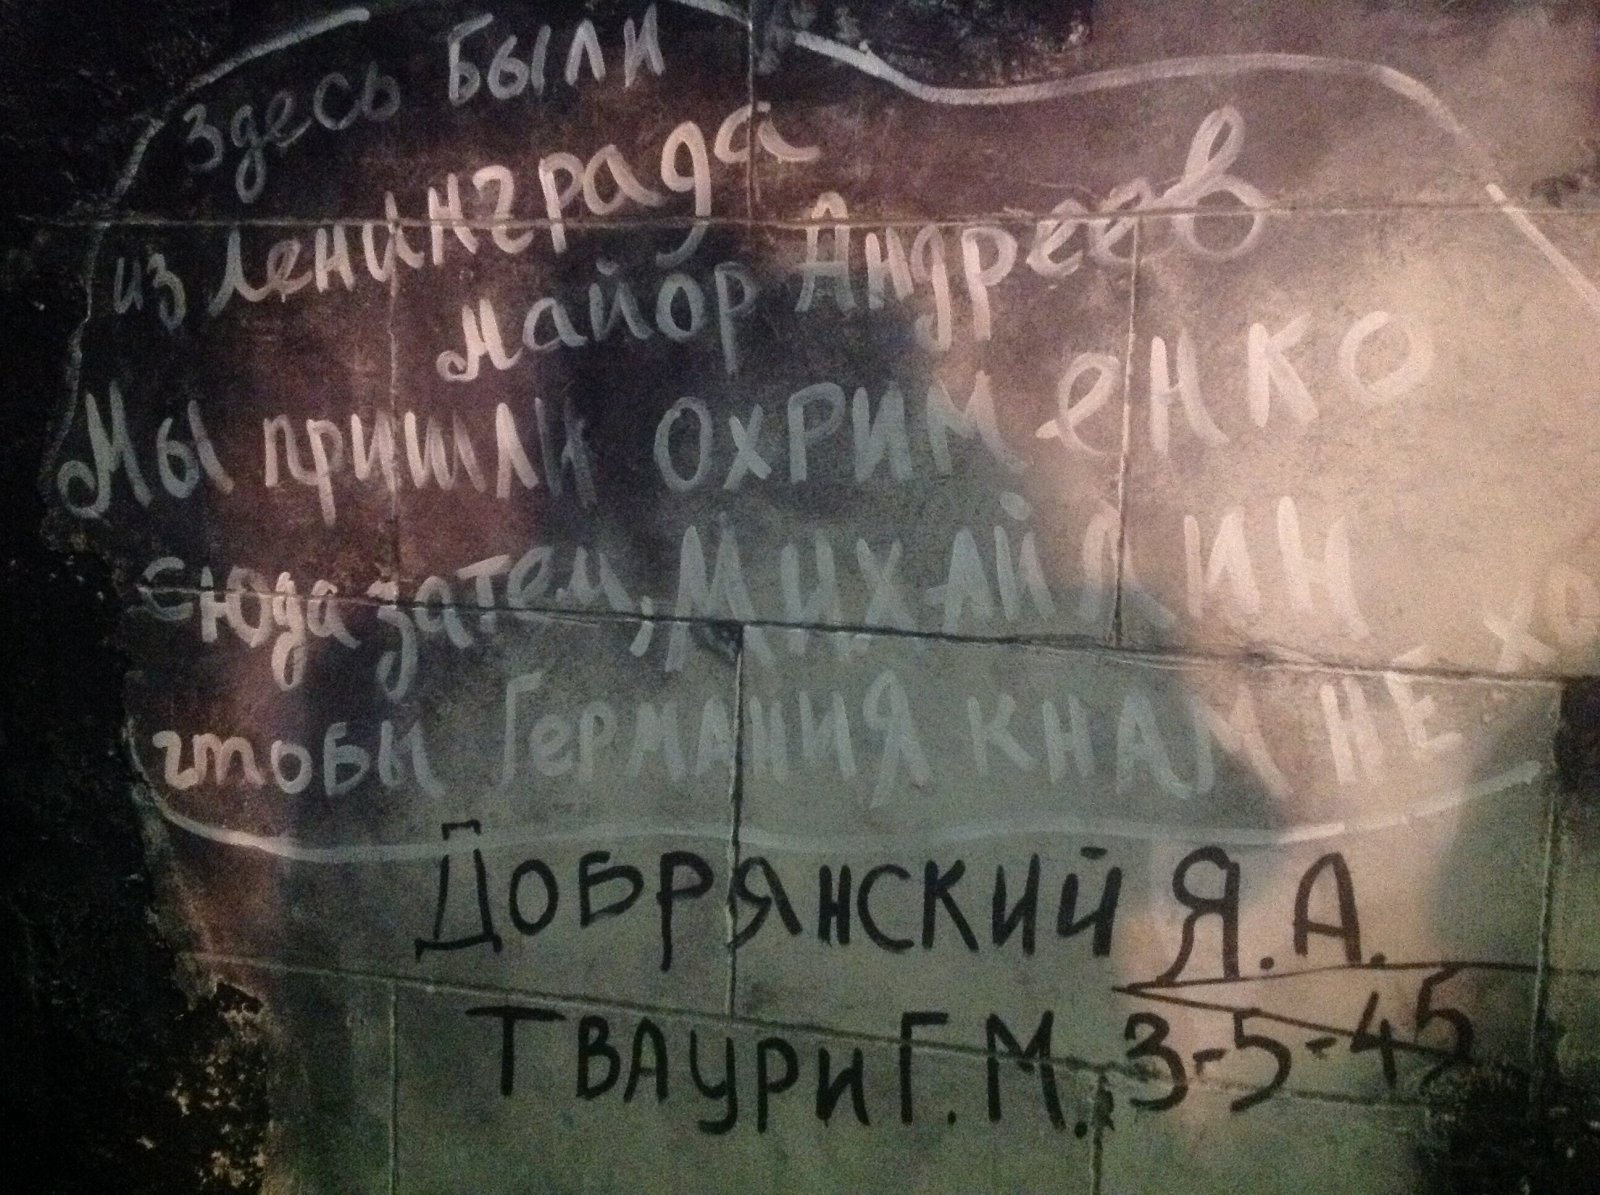 Здесь были
из Ленинграда
майор Андреев
Мы пришли ОХРИМЕНКО
сюда затем, МИХАЙЛИН
чтобы Германия К НАМ НЕ ХО
ДОБРЯНСКИЙ Я.А.
ТВАУРИ Г.М. 3-5-45